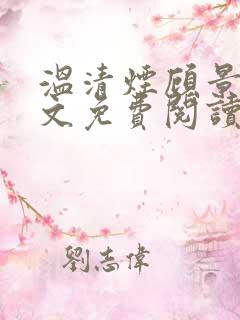 溫清煙顧景
文免費閱讀
劉志偉